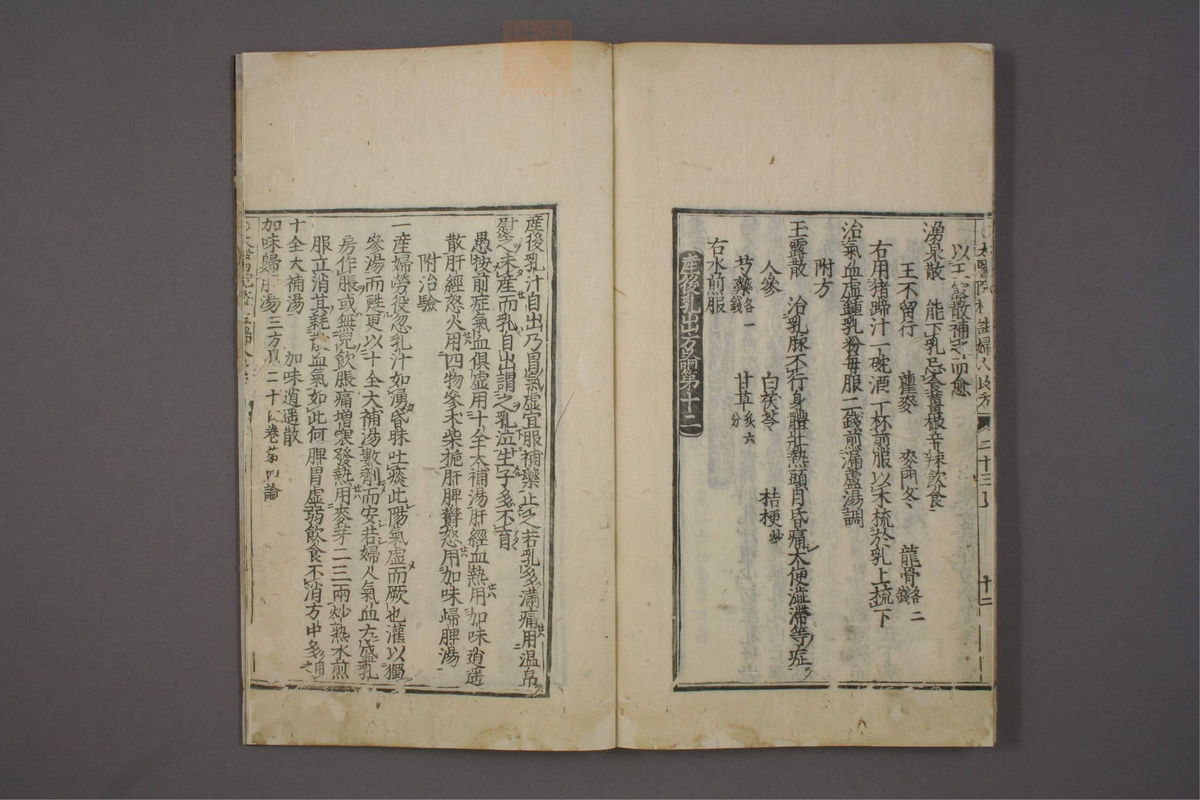 太醫院校註婦人良方 二十三 十二
以玉露散補之而愈
湧泉散 能下乳忌食薑椒辛辣飲食
王不留行 瞿麥 麥門冬 龍骨各二錢
右用猪蹄汁一碗酒一杯煎服以木梳於乳上梳下
治氣血虛鍾乳粉每服二錢煎漏蘆湯調
附方
玉露散 治乳脉不行身體壯熱頭目昏痛大便澁滯等症
人參 白茯苓 桔梗炒
芍藥各一錢 甘草炙六分
右水煎服
產後乳出方論第十二
產後乳汁自出乃胃氣虛宜服補藥止之若乳多滿痛用温帛
熨之未產而乳自出謂之乳泣生子多不育
愚按前症氣血俱虛用十全大補湯肝經血熱用加味逍遥
散肝經怒火用四物參术柴栀肝脾欝怒用加味歸脾湯
附治驗
一產婦勞役忽乳汁如湧昏昧吐痰此陽氣虛而厥也灌以獨
參湯而甦更以十全大補湯數劑而安若婦人氣血方盛乳
房作脹或無兒飲脹痛增寒發熱用麥芽二三兩炒熟水煎
服立消其耗散血氣如此何脾胃虛弱飲食不消方中多用之
十全大補湯 加味逍遥散
加味歸脾湯三方見二十四卷第四論